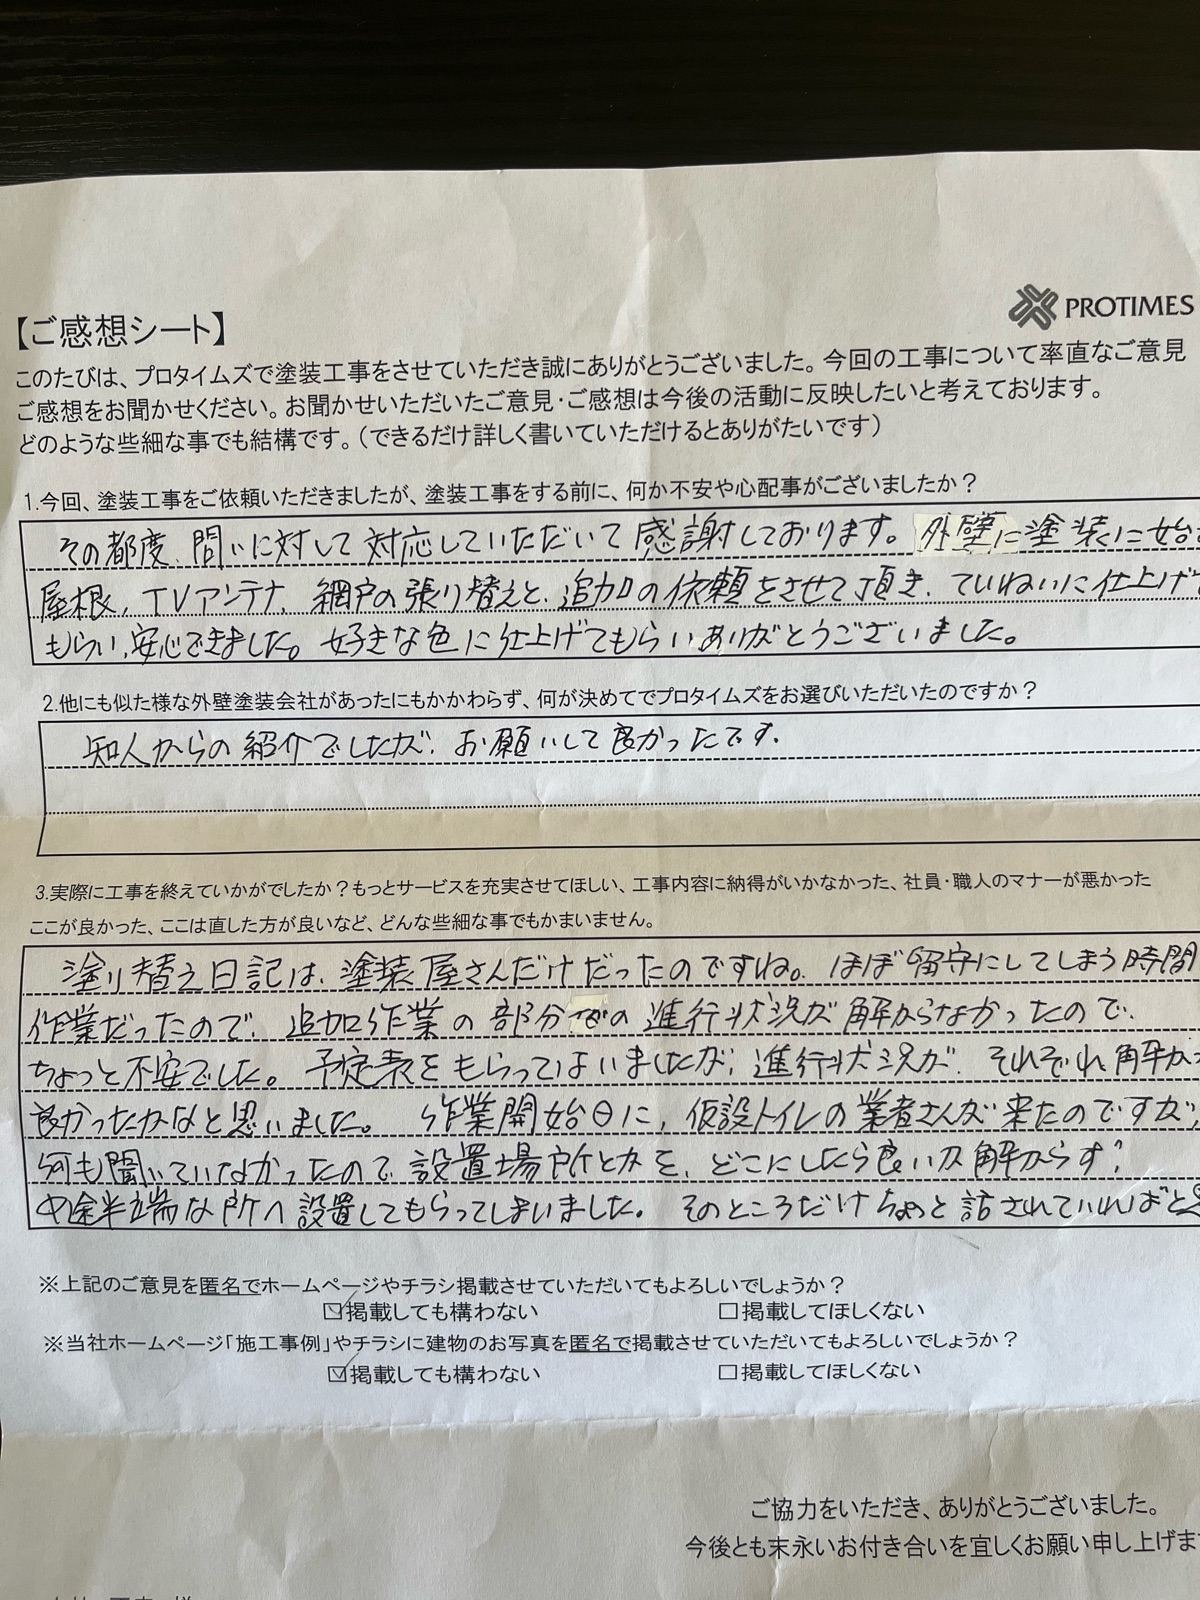 PROTIMES
【ご感想シート】
このたびは、プロタイムズで塗装工事をさせていただき誠にありがとうございました。今回の工事について率直なご意見
ご感想をお聞かせください。お聞かせいただいたご意見・ご感想は今後の活動に反映したいと考えております。
どのような些細な事でも結構です。（できるだけ詳しく書いていただけるとありがたいです）
1.今回、塗装工事をご依頼いただきましたが、塗装工事をする前に、何か不安や心配事がございましたか？
その都度、問いに対して対応していただいて感謝しております。外壁に塗装に始
屋根、TVアンテナ、網戸の張り替えと、追加の依頼をさせて頂き、ていねいに仕上げ
もらい、安心できました。好きな色に仕上げてもらいありがとうございました。
2.他にも似た様な外壁塗装会社があったにもかかわらず、何が決めてでプロタイムズをお選びいただいたのですか？
知人からの紹介でしたが、お願いして良かったです。
3.実際に工事を終えていかがでしたか？もっとサービスを充実させてほしい、工事内容に納得がいかなかった、社員・職人のマナーが悪かった
ここが良かった、ここは直した方が良いなど、どんな些細な事でもかまいません。
塗り替え日記は、塗装屋さんだけだったのですね。ほぼ留守にしてしまう時間
作業だったので、追加作業の部分での進行状況が解からなかったので、
ちょっと不安でした。予定表をもらってはいましたが、進行状況が、それぞれ解か
良かったかなと思いました。作業開始日に、仮設トイレの業者さんが来たのですが、
何も聞いていなかったので設置場所とかを、どこにしたら良いか解からず？
中途半端な所へ設置してもらってしまいました。そのところだけちょっと話されていればと
※上記のご意見を匿名でホームページやチラシ掲載させていただいてもよろしいでしょうか？
☑掲載しても構わない □掲載してほしくない
※当社ホームページ「施工事例」やチラシに建物のお写真を匿名で掲載させていただいてもよろしいでしょうか？
☑掲載しても構わない □掲載してほしくない
ご協力をいただき、ありがとうございました。
今後とも末永いお付き合いを宜しくお願い申し上げま